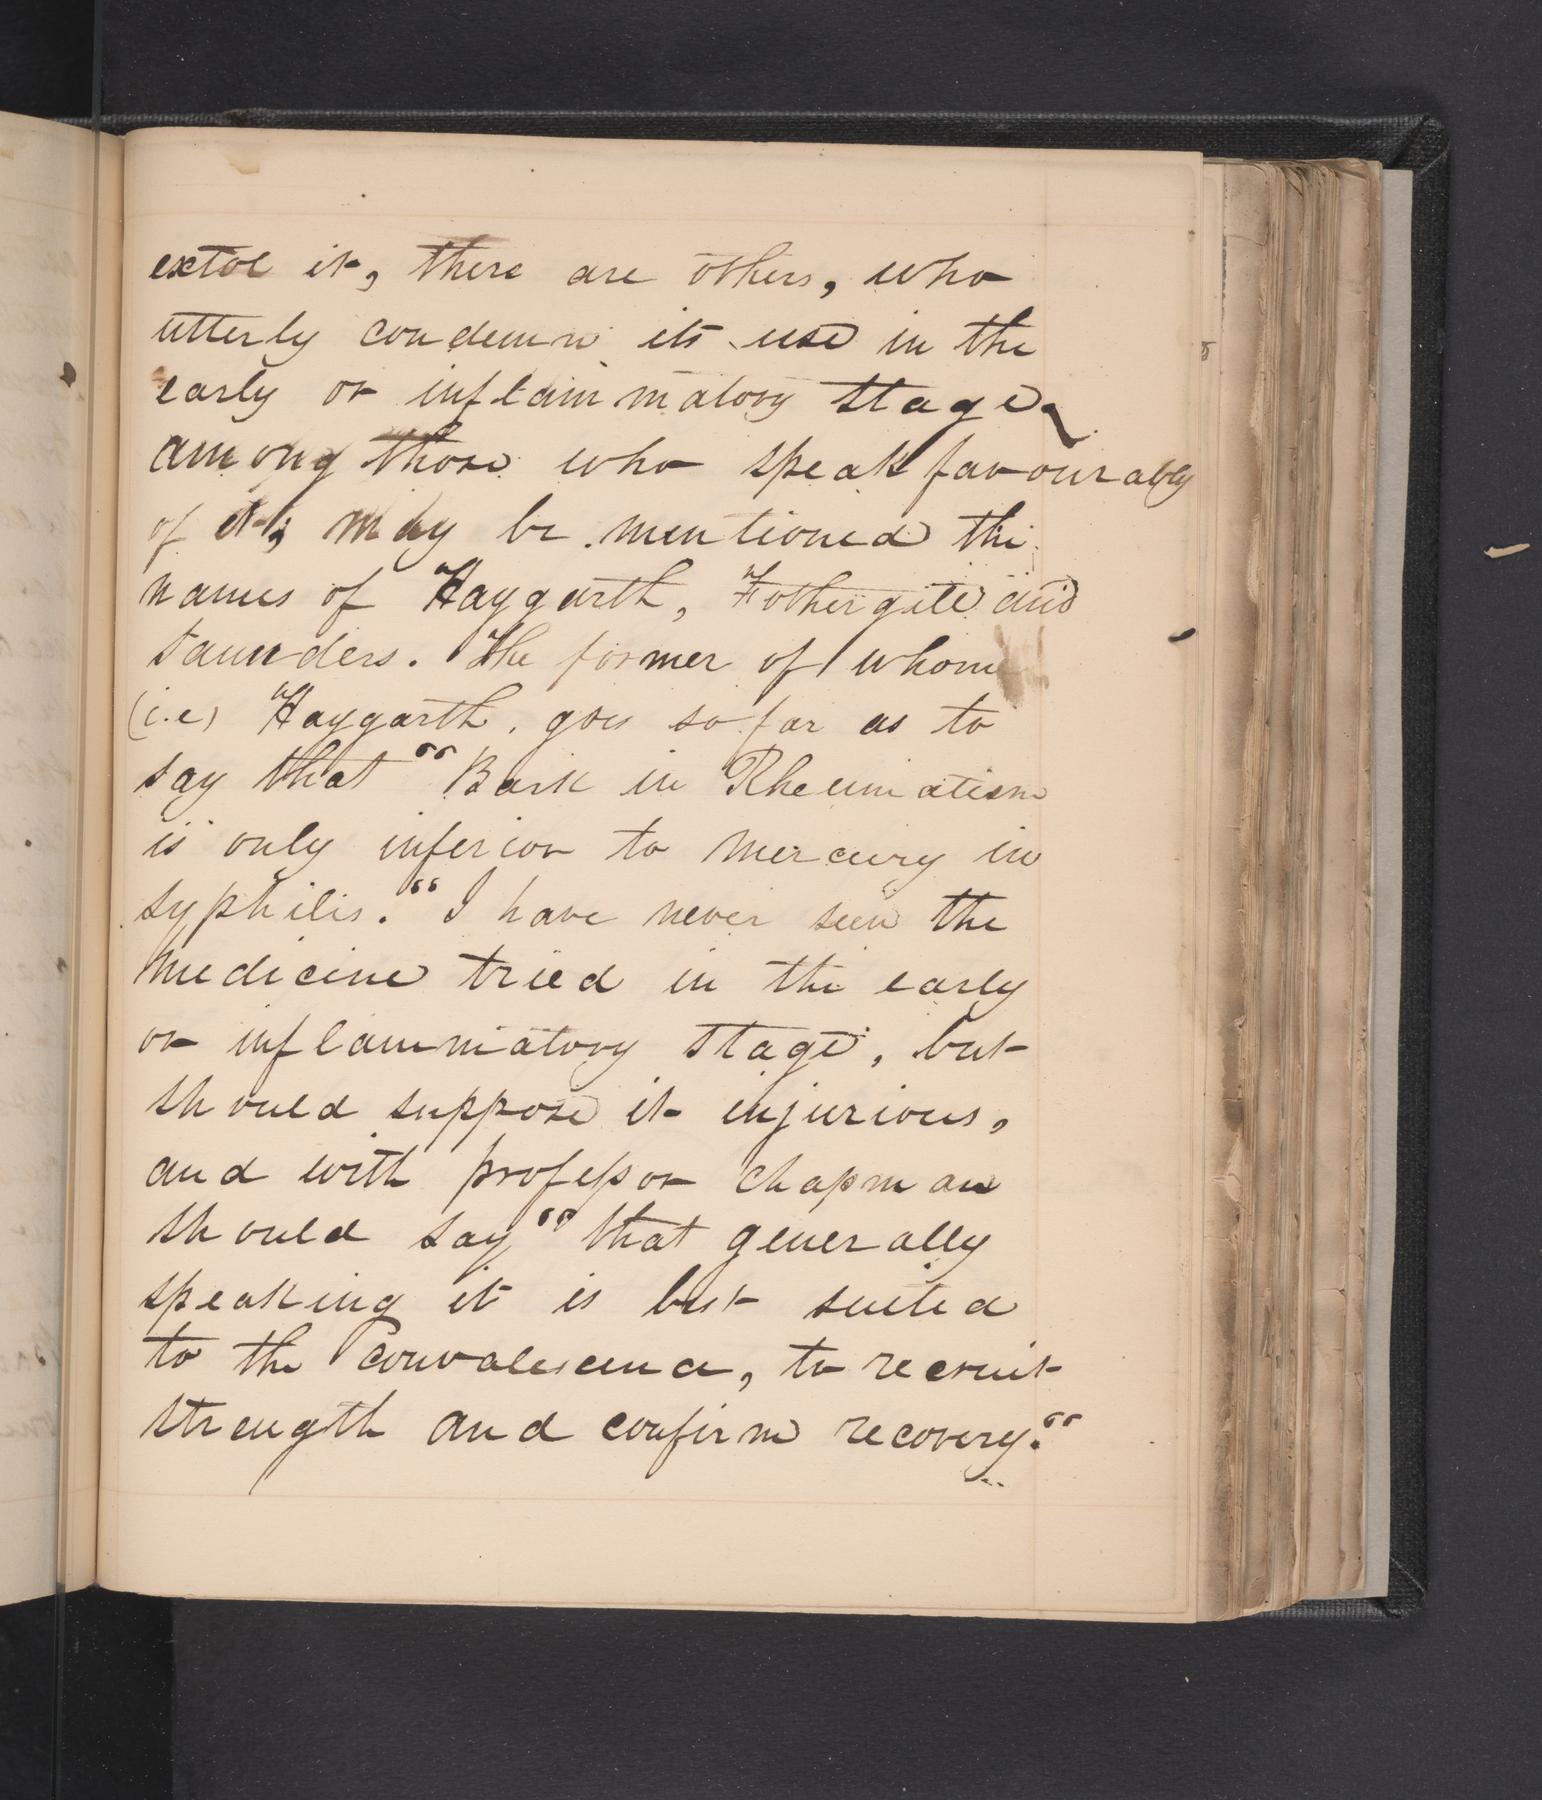 extol it, there are others, who
utterly condemn its use in the
early or inflammatory stage.
among those who speak favourably
of it; may be mentioned the
names of Haygarth, Fothergill and
Saunders. The former of whom
(i.e) Haygarth, goes so far as to
say that "Bark in Rheumatism
is only inferior to mercury in
syphilis." I have never seen the
medicine tried in the early
or inflammatory stage, but
should suppose it injurious,
and with professor Chapman
should say "that generally
speaking it is best suited
to the convalescence, to recruit
strength and confirm recovery."